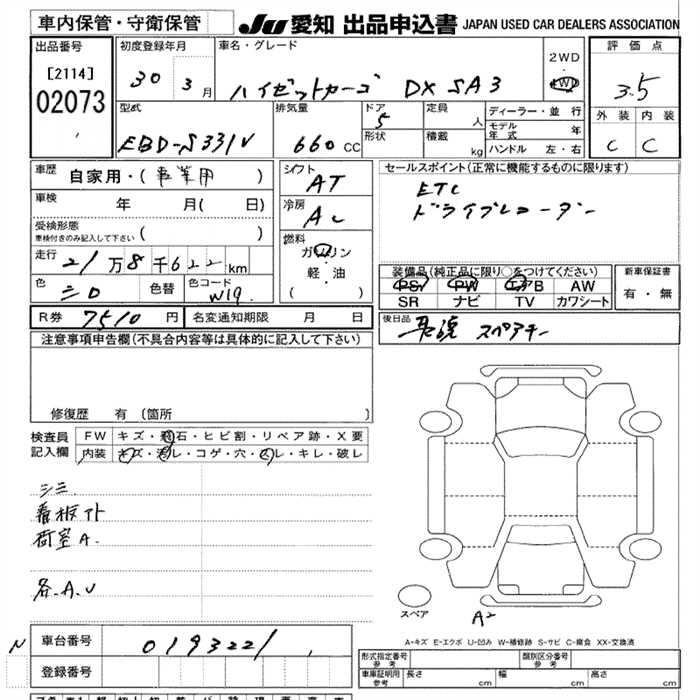 車内保管・守衛保管
JU 愛知 出品申込書 JAPAN USED CAR DEALERS ASSOCIATION
出品番号
[2114]
02073
初度登録年月
30 3 月
車名・グレード
ハイゼットカーゴ DX SA3
2WD
・
4WD
評価点
3.5
外装 内装
C C
型式
EBD-S331V
排気量
660 CC
ドア
5
形状
定員
人
積載
kg
ディーラー・並行
モデル年式 年
ハンドル 左・右
車歴
自家用・(事業用)
車検 年 月( 日)
受検形態
車検付きのみ記入して下さい ( )
走行
21万8千622km
色 シロ 色替 色コード W19
シフト
AT
冷房
AC
燃料
ガソリン
・
軽・油
( )
セールスポイント(正常に機能するものに限ります)
ETC
ドライブレコーダー
装備品(純正品に限り○をつけてください)
PS PW エアB AW
SR ナビ TV カワシート
新車保証書
有・無
R券 7510 円 名変通知期限 月 日
後日品
スペアキー
注意事項申告欄(不具合内容等は具体的に記入して下さい)
修復歴 有 〔箇所 〕
検査員
記入欄
FW キズ・飛石・ヒビ割・リペア跡・X要
内装 キズ・汚レ・コゲ・穴・スレ・キレ・破レ
シミ
看板アト
荷室A.
各.A.U
スペア
A2
A-キズ E-エクボ U-凹み W-補修跡 S-サビ C-腐食 XX-交換済
N
車台番号 0193221
登録番号
形式指定番号
参考
類別区分番号
参考
車庫証明用
参考
長さ cm 幅 cm 高さ cm